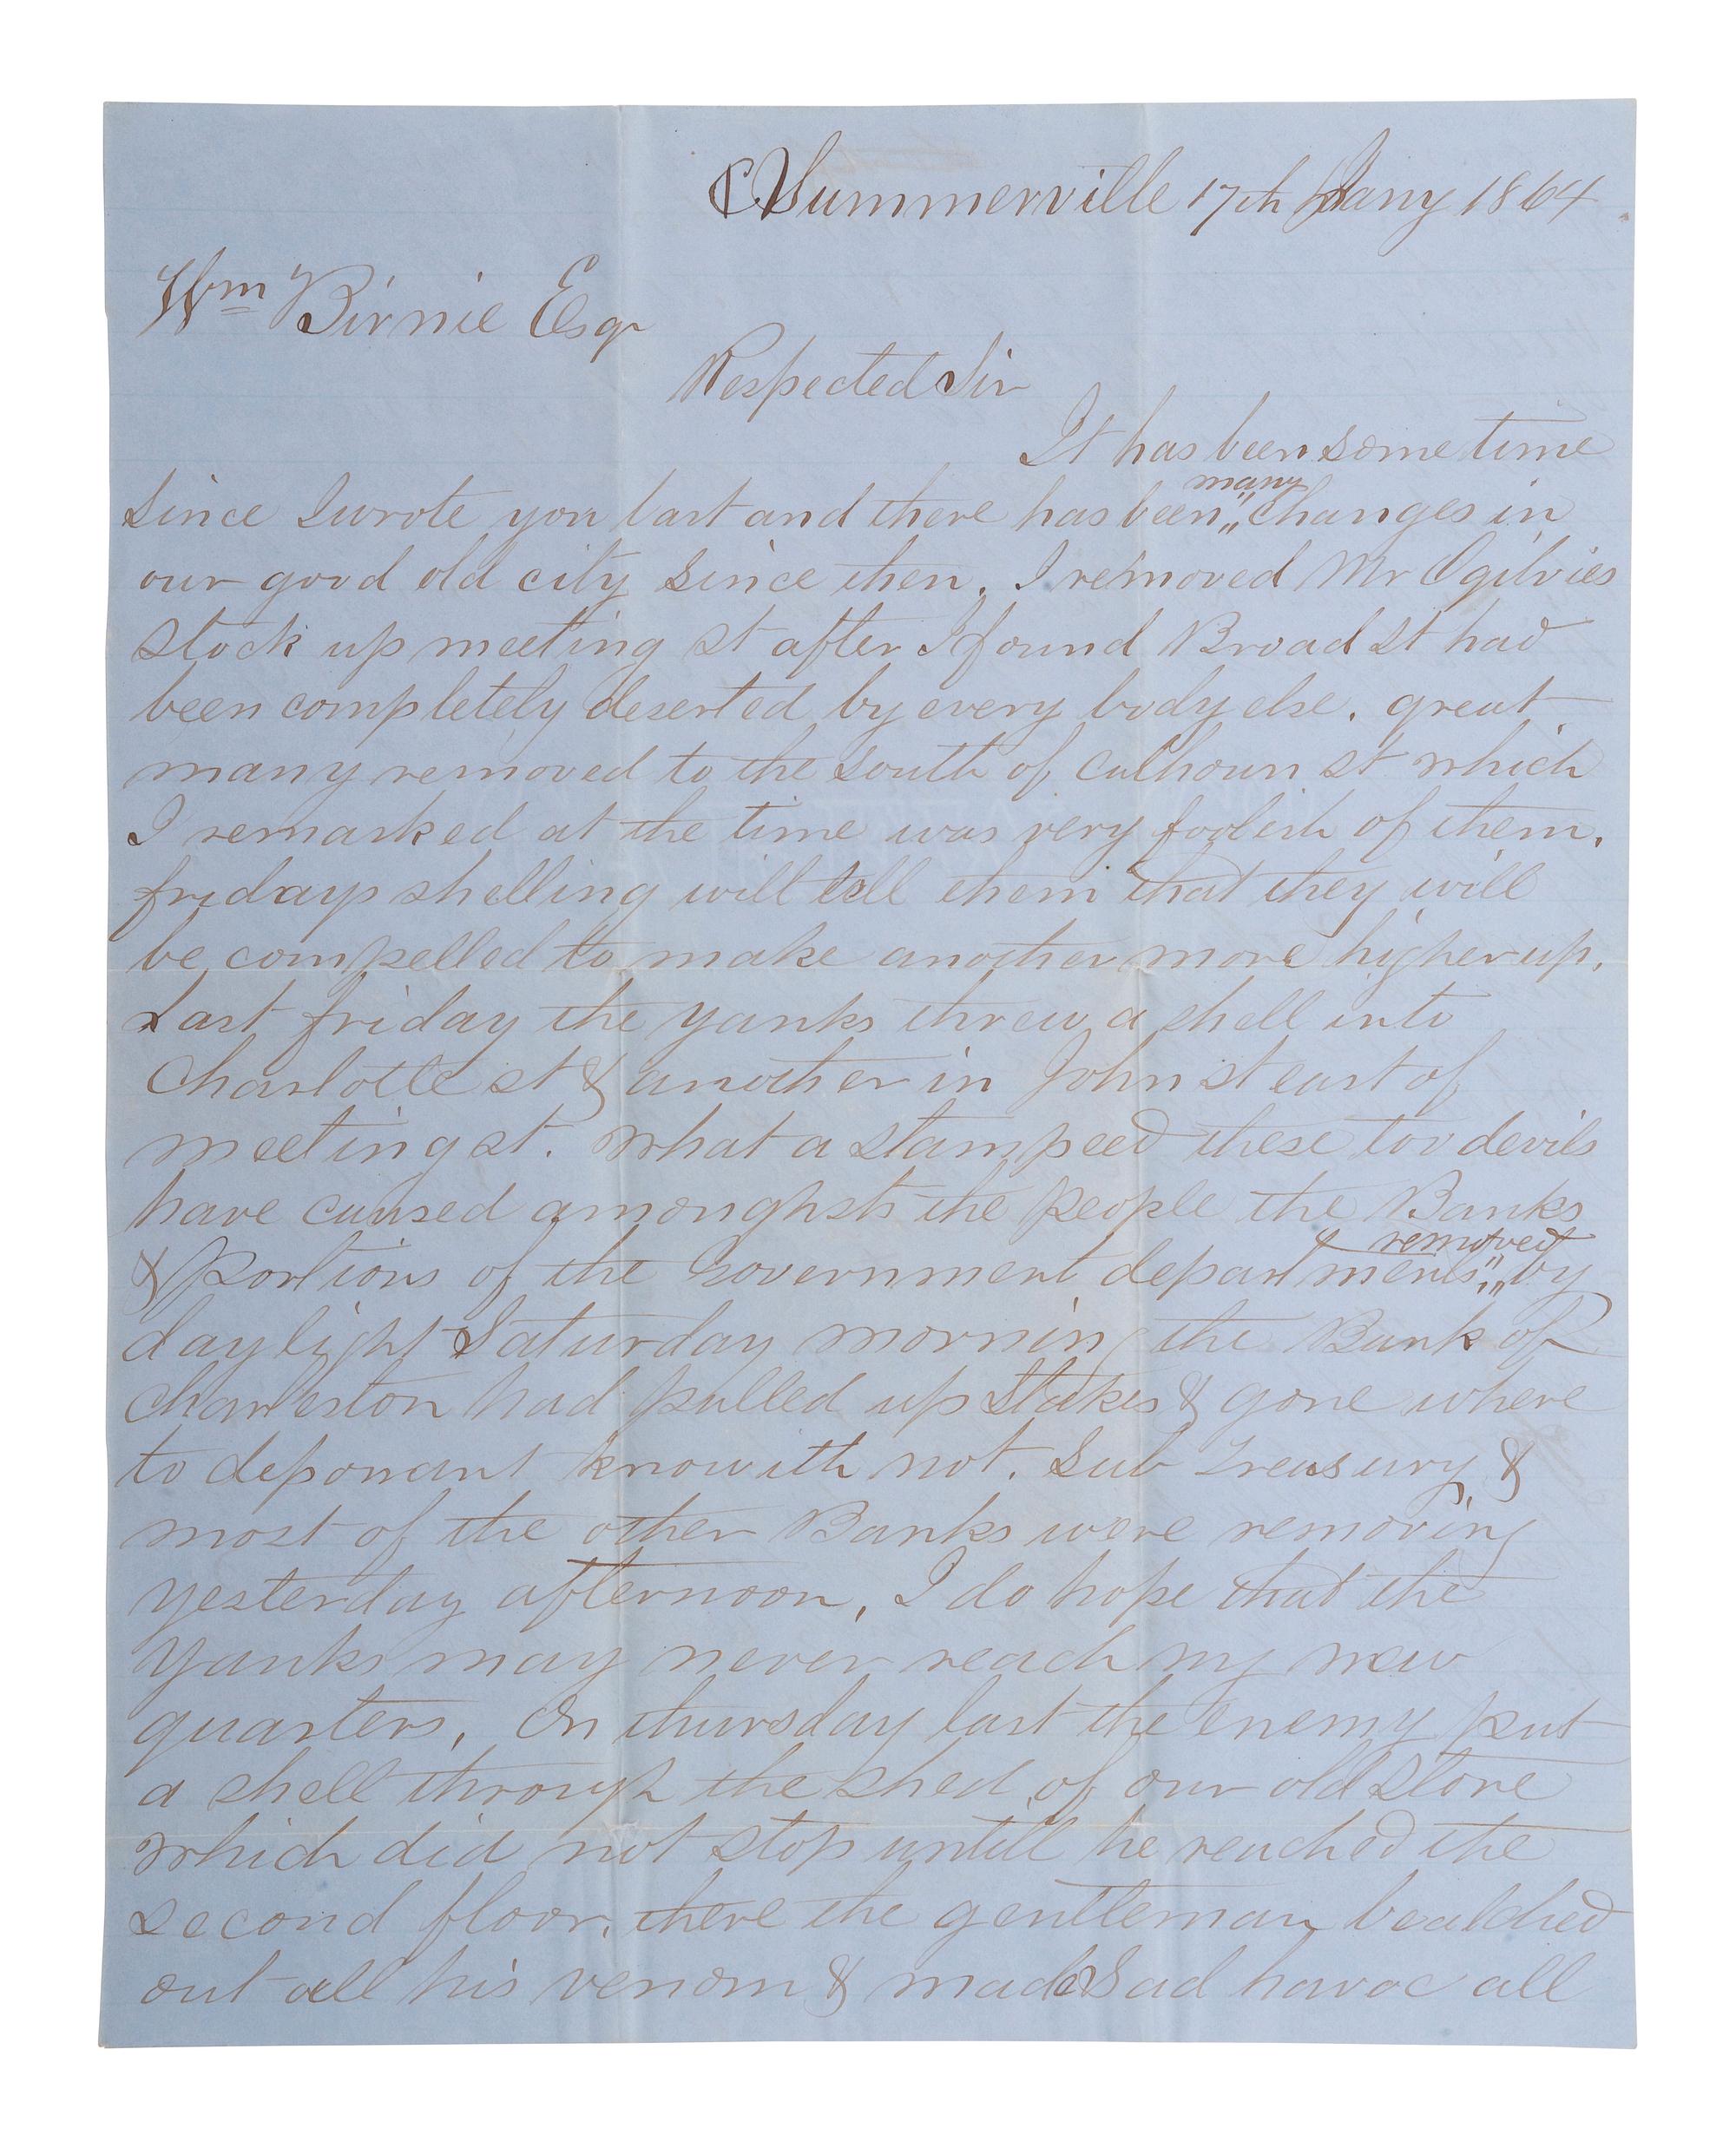 Summerville 17th Jany 1864
Wm Birnie Esqr
Respected Sir
It has been some time
since I wrote you last and there has been many changes in
our good old city since then. I removed Mr Ogilvies
stock up meeting st after I found Broad St had
been completely deserted by every body else. great
many removed to the south of Calhoun st which
I remarked at the time was very foolish of them.
fridays shelling will tell them that they will
be compelled to make another move higher up.
Last friday the yanks threw a shell into
Charlotte st & another in John st east of
meeting st. What a stampeed these too devils
have caused amonghsts the people the Banks
& portions of the Government departments removed by
daylight Saturday morning the Bank of
Charleston had pulled up stakes & gone where
to deponant knowith not. Sub Treasury &
most of the other Banks were removing
yesterday afternoon, I do hope that the
Yanks may never reach my new
quarters. On thursday last the enemy put
a shell through the shed of our old store
which did not stop untill he reached the
second floor. there the gentleman bealched
out all his venom & made Sad havoc all